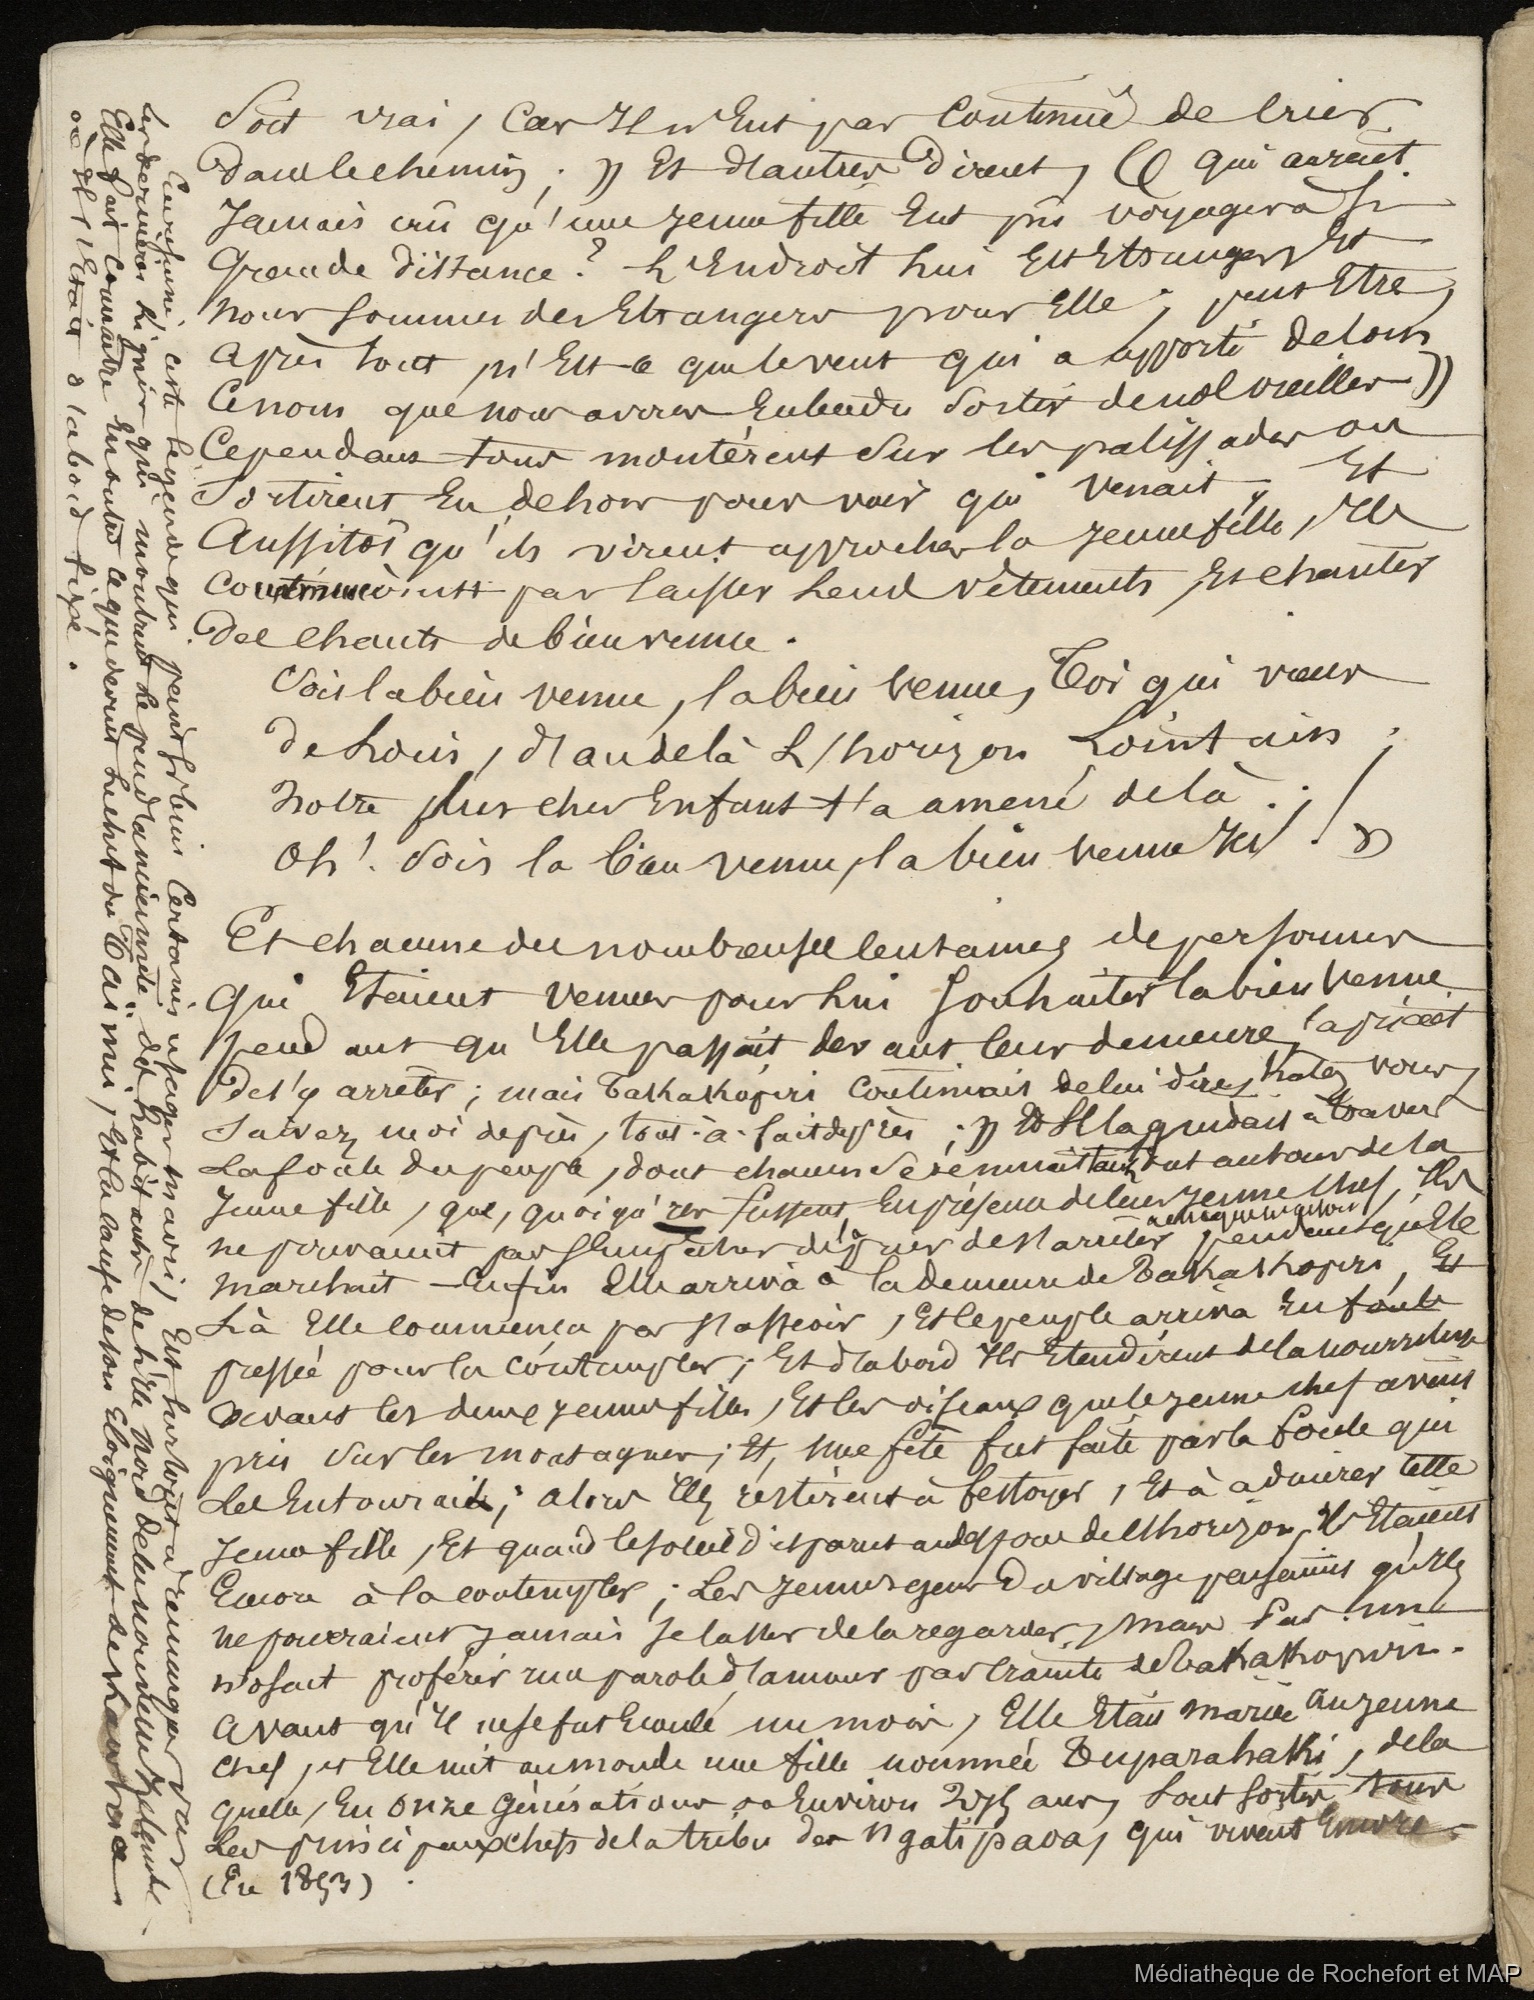 Soit vrai, Car Il n'Eut pas Continué de crier
Dans le chemin ; » Et d'autres Dirent, « qui aurait
Jamais crû qu'une jeune fille Eut pû voyager à Si
Grande distance ? L'Endroit lui Est Etranger, Et
nous sommes des Etrangers pour Elle ; peut Etre,
Après tout, n'Est-ce que le vent qui a apporté de loin
Ce nom que nous avons Entendu Sortir de nos oreilles »
Cependant tous montèrent Sur les palissades ou
Sortirent En dehors pour voir qui venait, Et
Aussitôt qu'ils virent approcher la jeune fille, Ils
par laisser leurs vêtements, Et chanter
Des Chants de bienvenue.
Sois la bien venue, la bien venue, Toi qui viens
De Loin, d'au delà L'horizon Lointain ;
Notre plus cher Enfant t'a amené de là ; /
Oh ! Sois la bien venue, la bien venue Ici ! »
Et chacune des nombreuses centaines de personnes
Qui Etaient venues pour lui Souhaiter la bien venue
pend ant qu'Elle passait devant leur demeure,
De s'y arrêter ; mais Takakopiri Continuait de lui dire, hatez vous,
Suivez moi de près, tout-à-fait de près ; » Et Il la guidait à travers
La foule du peuple, dont chacun se remuait tant autour de la
Jeune fille, que, quoiqu'ils fussent En présence de leur jeune chef, Ils
ne pouvaient pas s'Empêcher de de s'arrêter pendant qu'Elle
marchait — Enfin Elle arriva à la demeure de Takakopiri, Et
Là Elle commença par s'asseoir, Et le peuple arriva En foule
pressée pour la Contempler ; Et d'abord Ils Etendirent de la nourriture
devant les deux jeunes filles, Et les oiseaux que le jeune chef avait
pris Sur les montagnes ; Et, une fête fut faite par la foule qui
Les Entourait ; alors Ils restèrent à festoyer, Et à admirer cette
Jeune fille, Et quand le soleil disparut au dessous de l'horizon, Ils Etaient
Encore à la contempler ; Les jeunes gens Du village pensaient qu'Ils
ne pourraient jamais se lasser de la regarder, Mais Pas un
n'osait proférer une parole d'amour par crainte de Takakopiri.
Avant qu'Il ne se fut Ecoulé un mois, Elle Etait Mariée Au jeune
Chef, et Elle mit au monde une fille nommée Tuparahaki, de la
quelle, En onze Générations ou Environ 275 ans, Sont Sortis tous
Les principaux chefs de la tribu des Ngatipaoa, qui vivent Encore
(En 1853).
Curieuse, cette légende qui peint si bien Certains usages maoris, Est surtout à remarquer
Les dernières lignes qui montrent le peu d'ancienneté des habitants de l'île Nord de la nouvelle Zélande
Elle fait connaître En outre ce que devint le chef du Tainui, Et la cause de son Eloignement de
où Il s'Etait d'abord fixé.